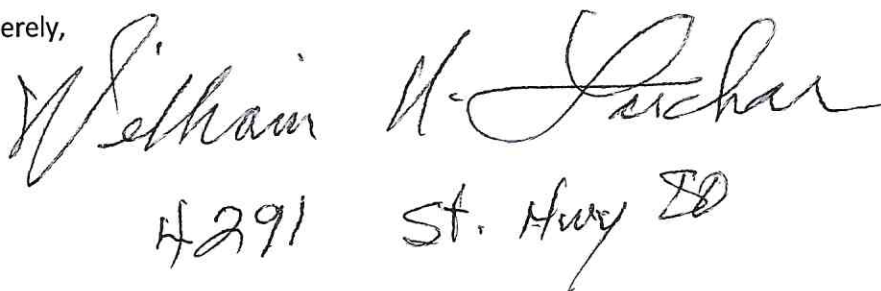 erely,
William H.
4291 St. Hwy 80